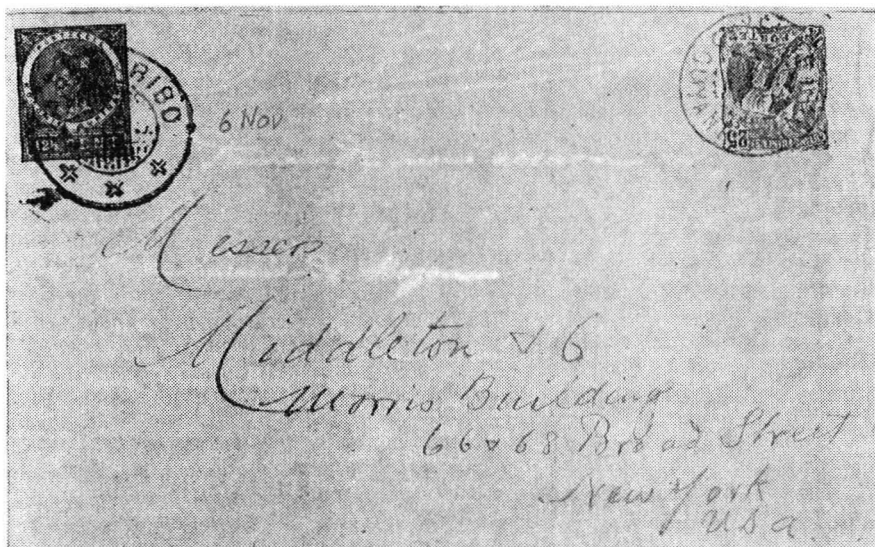 RIBO
6 Nov
25
Messrs
Middleton & Co
Morris Building
66 & 68 Broad Street
New York
USa